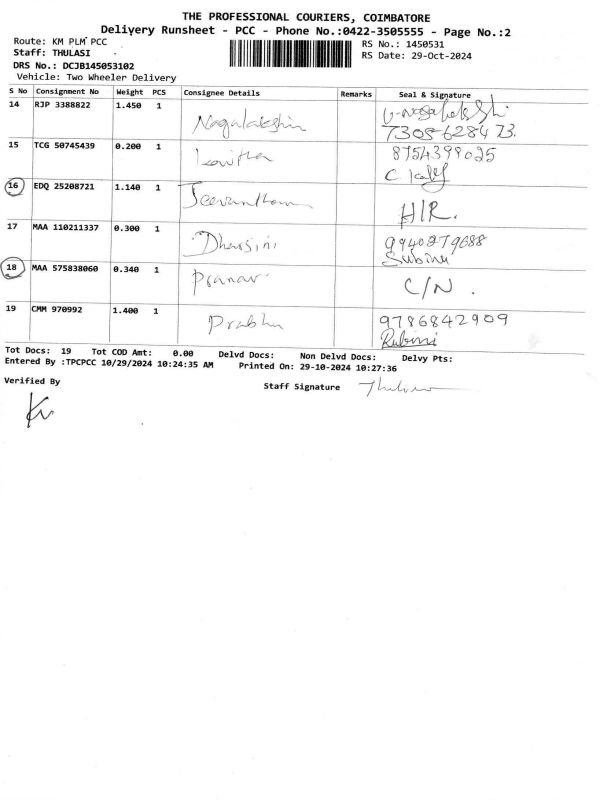 THE PROFESSIONAL COURIERS, COIMBATORE
Delivery Runsheet - PCC - Phone No.:0422-3505555 - Page No.:2
Route: KM PLM PCC
RS No.: 1450531
Staff: THULASI
RS Date: 29-Oct-2024
DRS No.: DCJB145053102
Vehicle: Two Wheeler Delivery
S No Consignment No Weight PCS Consignee Details Remarks Seal & Signature
14 RJP 3388822 1.450 1 Nagalakshmi
7305628473
15 TCG 50745439 0.200 1 Kavitha 8754399025
16 EDQ 25208721 1.140 1 Jeevantham H/R.
17 MAA 110211337 0.300 1 Dharsini 9940279688
Subinu
18 MAA 575838060 0.340 1 Pranav C/N.
19 CMM 970992 1.400 1 Prabhu 9786842909
Rubini
Tot Docs: 19 Tot COD Amt: 0.00 Delvd Docs: Non Delvd Docs: Delvy Pts:
Entered By :TPCPCC 10/29/2024 10:24:35 AM Printed On: 29-10-2024 10:27:36
Verified By
Staff Signature